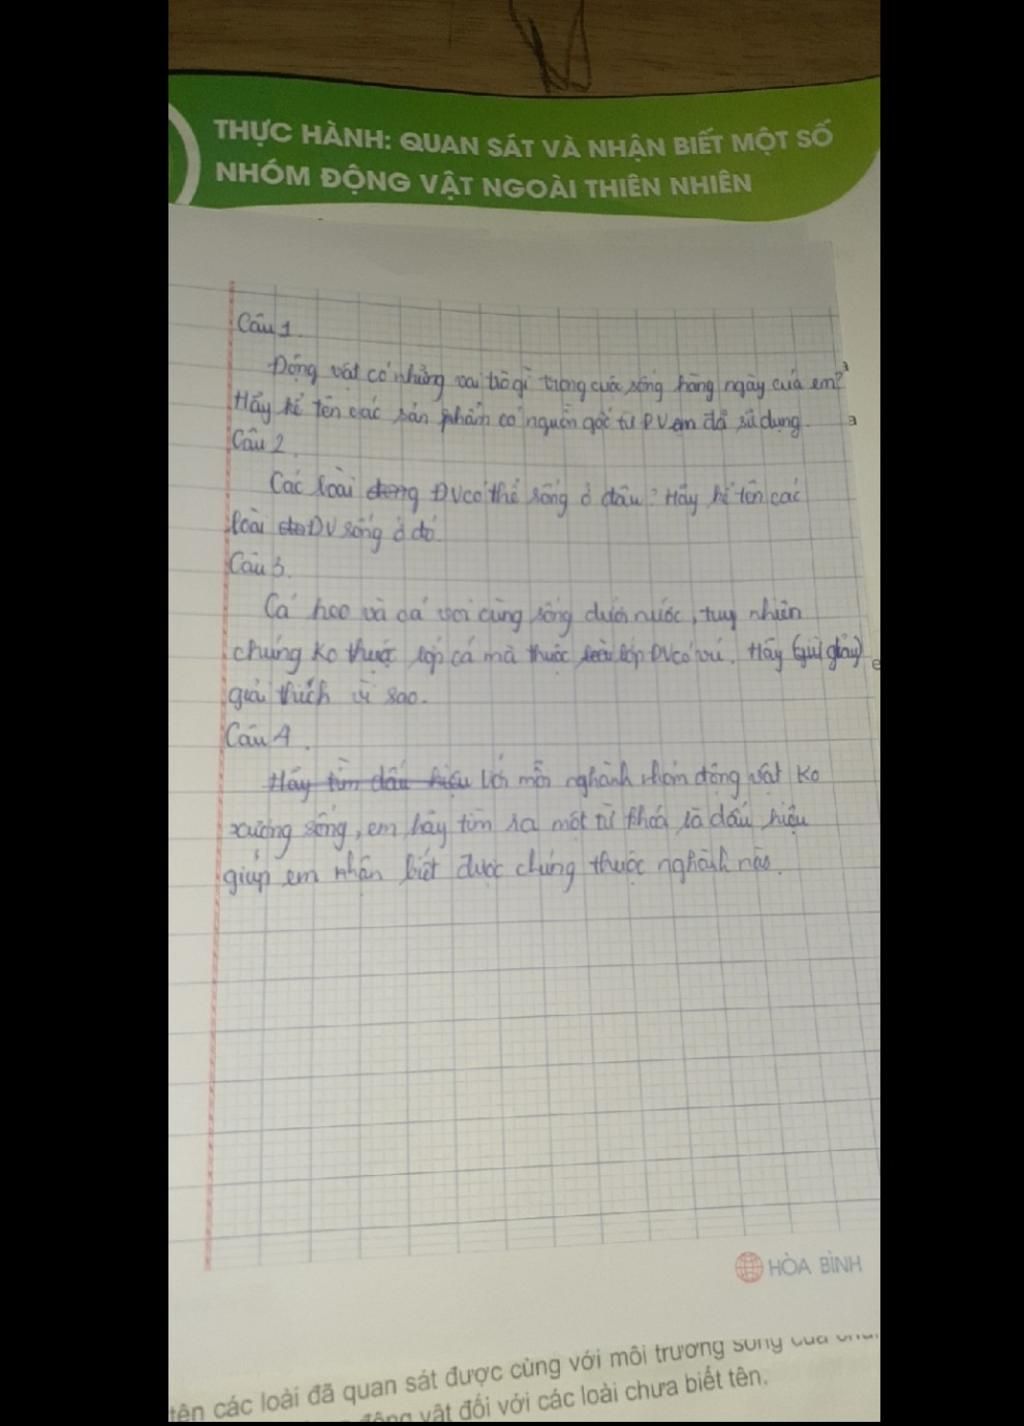 THỰC HÀNH: QUAN SÁT VÀ NHẬN BIẾT MỘT SỐ
NHÓM ĐỘNG VẬT NGOÀI THIÊN NHIÊN
Câu 1.
Động vật có những vai trò gì trong cuộc sống hằng ngày của em?
Hãy kể tên các sản phẩm có nguồn gốc từ ĐV em đã sử dụng.
Câu 2.
Các loài ĐV có thể sống ở đâu? Hãy kể tên các
loài ĐV sống ở đó.
Câu 3.
Cá heo và cá voi cùng sống dưới nước, tuy nhiên
chúng ko thuộc lớp cá mà thuộc lớp ĐV có vú. Hãy
giải thích vì sao.
Câu 4.
Hãy tìm dấu hiệu Với mỗi nghành nhóm động vật ko
xương sống, em hãy tìm ra một từ khoá là dấu hiệu
giúp em nhận biết được chúng thuộc nghành nào.
HÒA BÌNH
tên các loài đã quan sát được cùng với môi trường sống của
động vật đối với các loài chưa biết tên.